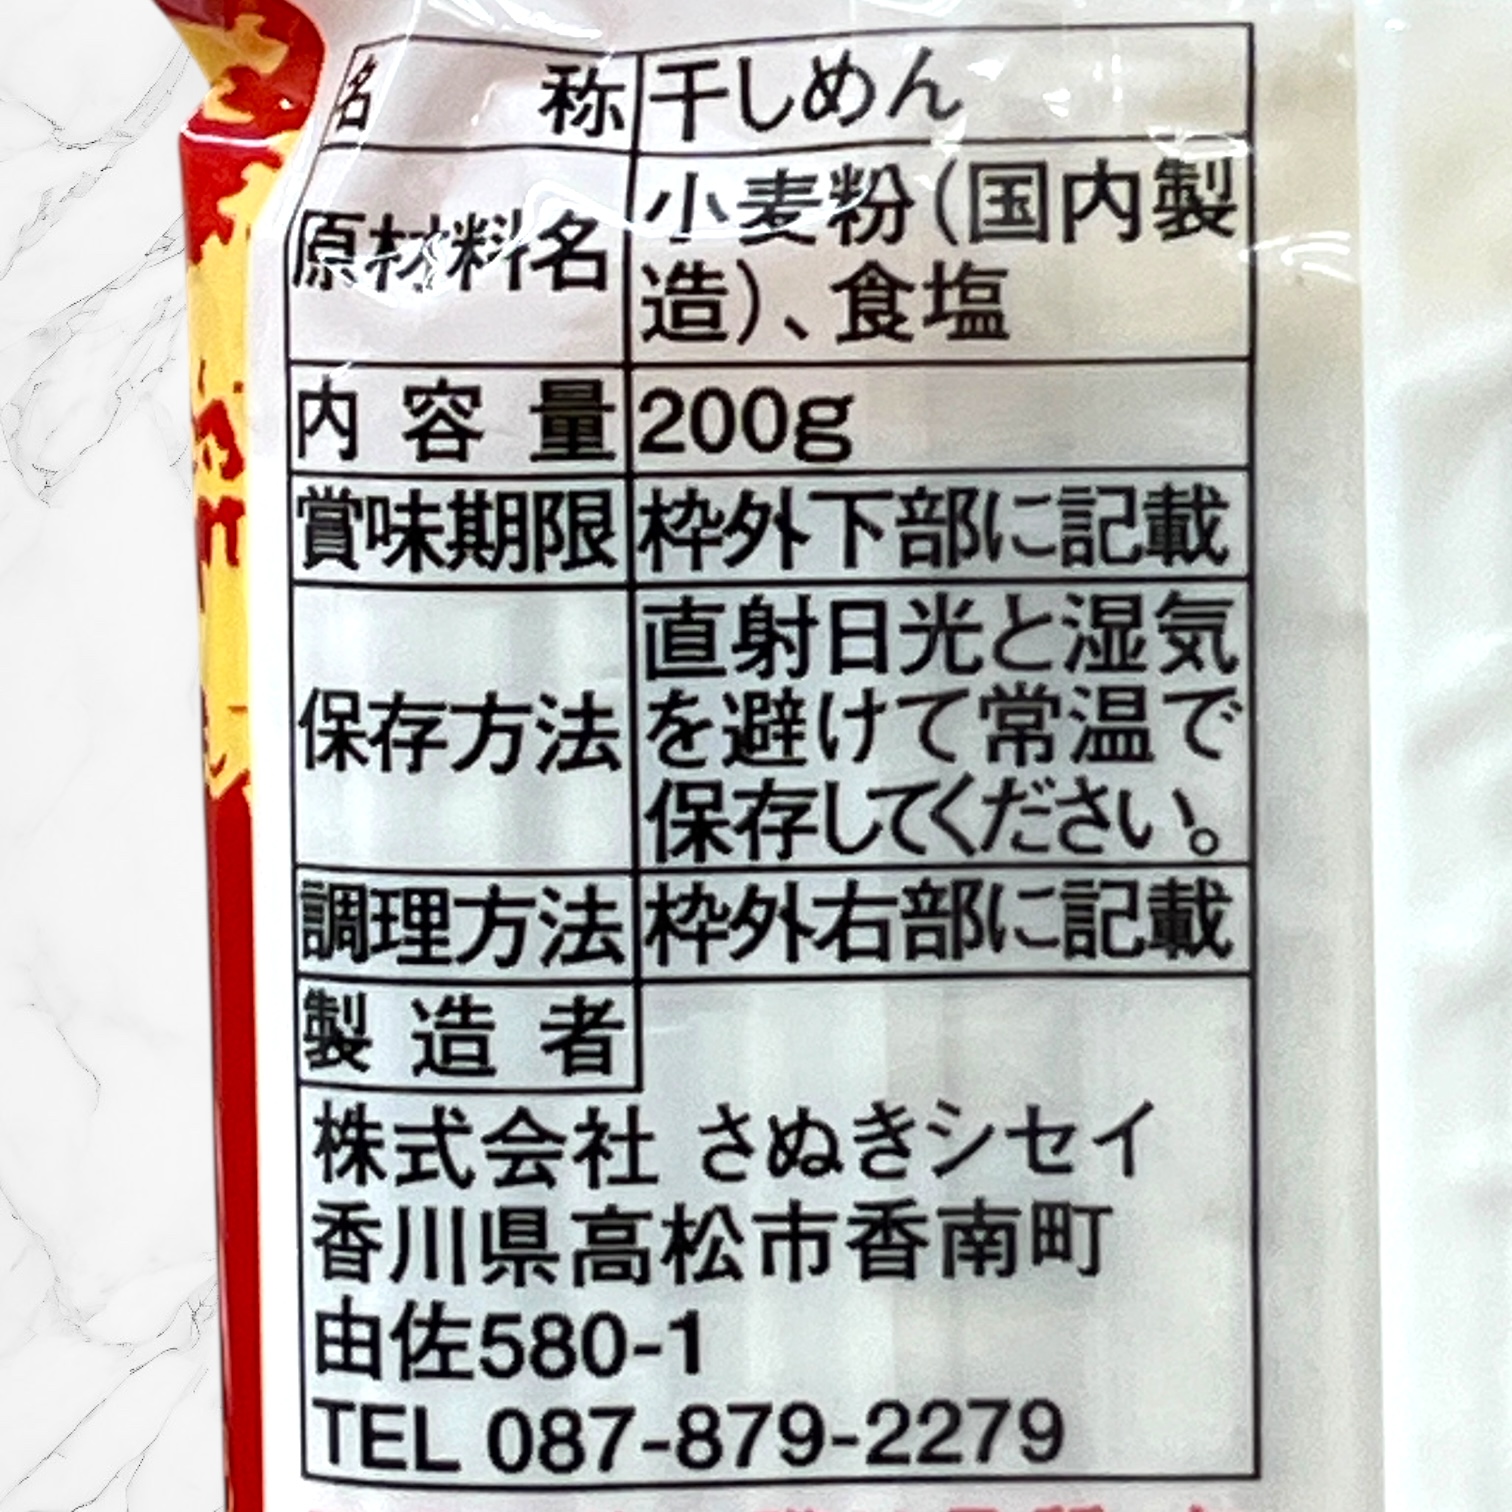 名称 干しめん
原材料名 小麦粉(国内製
造)、食塩
内容量 200g
賞味期限 枠外下部に記載
保存方法 直射日光と湿気
を避けて常温で
保存してください。
調理方法 枠外右部に記載
製造者
株式会社 さぬきシセイ
香川県高松市香南町
由佐580-1
TEL 087-879-2279